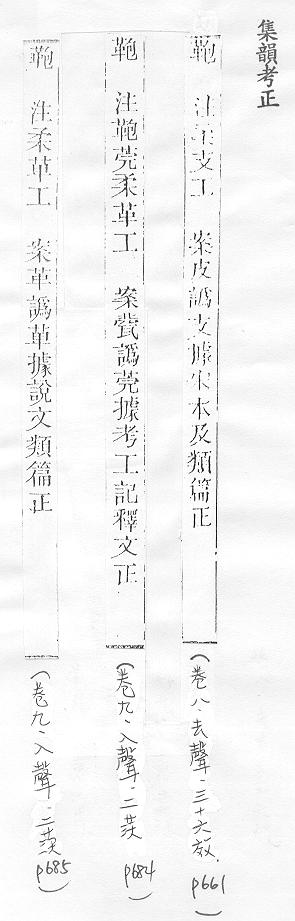 集韻考正
鞄 注柔支工 案皮譌支據宋本及類篇正
(卷八.去聲.三十六效. p661)
鞄 注鞄莞柔革工 案㼱譌莞據考工記釋文正
(卷九.入聲.二 p684)
鞄 注柔革工 案革譌革據說文類篇正
(卷九.入聲.二 p685)